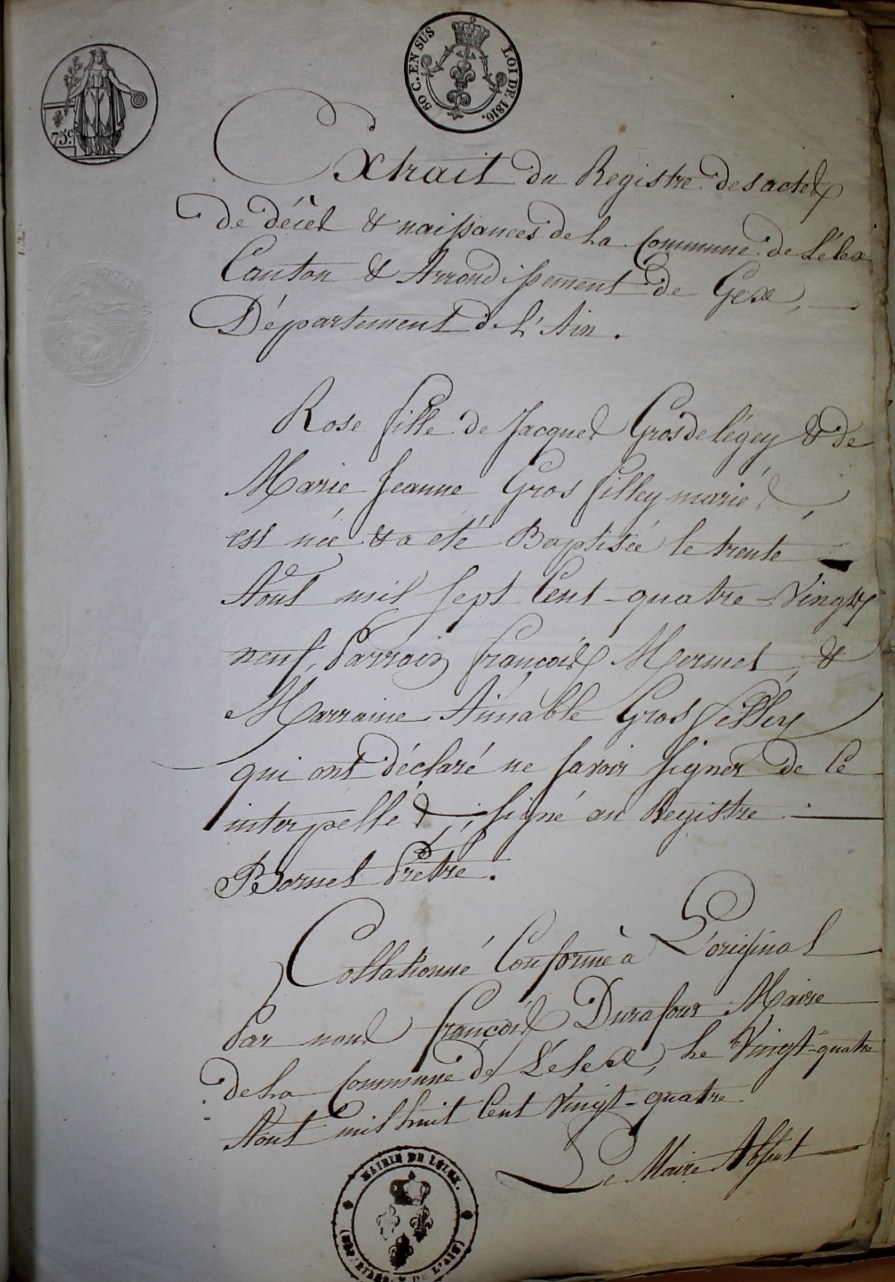 75c.
50 C. EN SUS LOI DE 1816.
Extrait du Registre des actes
de décès & naissances de la Commune de Lélex
Canton & Arrondissement de Gex,
Département de L'Ain.
Rose fille de Jacques Grosdelégey & de
Marie Jeanne Gros filley mariés
est née & a été Baptisée le trente
Aout mil Sept Cent-quatre-Vingts
neuf, Parrain françois Mermet, &
Marraine Aimable Gros filley
qui ont déclaré ne savoir signer de ce
interpellés; signé au Registre
Bornet Prêtre.
Collationné Conforme à L'original
Par nous françois Durafour Maire
de La Commune de Lélex, le Vingt-quatre
Aout mil huit Cent Vingt-quatre.
Le Maire Absent
MAIRIE DE LELEX.
(DÉPARTEMENT DE L'AIN)